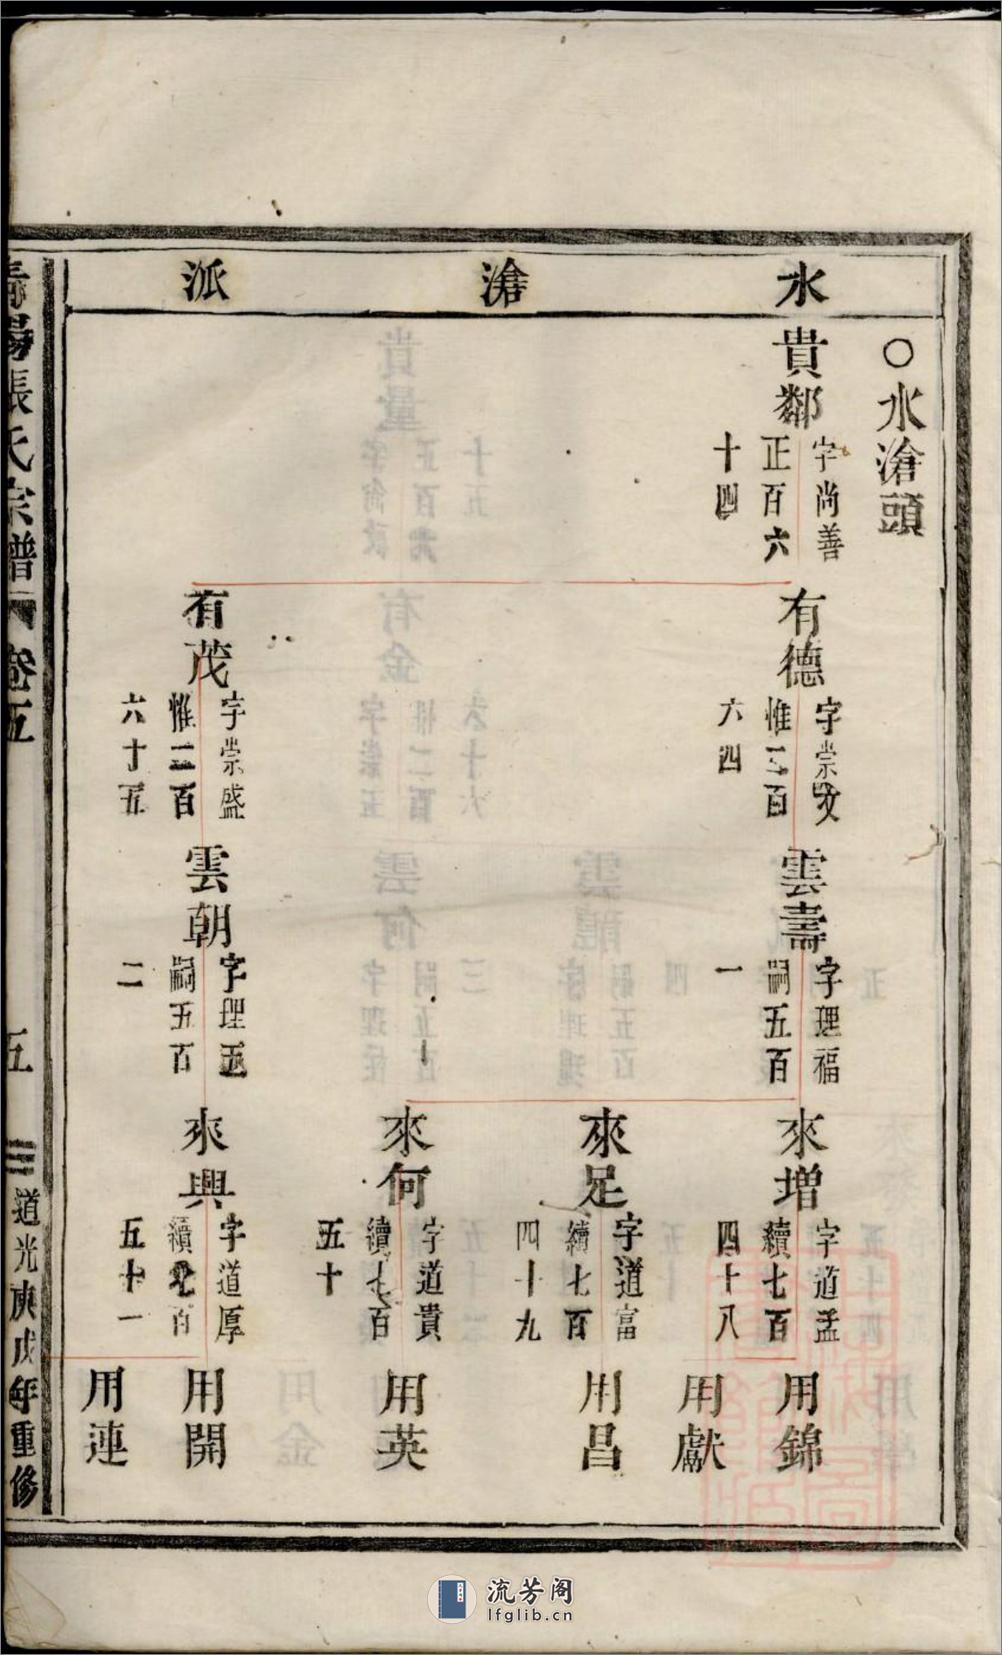 水滄派
○水滄頭
貴鄰
字尚善
正百六
十四
有德
字崇文
惟二百
六四
雲壽
字理福
嗣五百
一
來增
字道孟
續七百
四十八
用錦
用獻
來足
字道富
續七百
四十九
用昌
來何
字道貴
續七百
五十
用英
有茂
字崇盛
惟二百
六十五
雲朝
字理玉
嗣五百
二
來興
字道厚
續七百
五十一
用開
用連
張氏宗譜 卷五
五
道光庚戌年重修
流芳阁
lfglib.cn